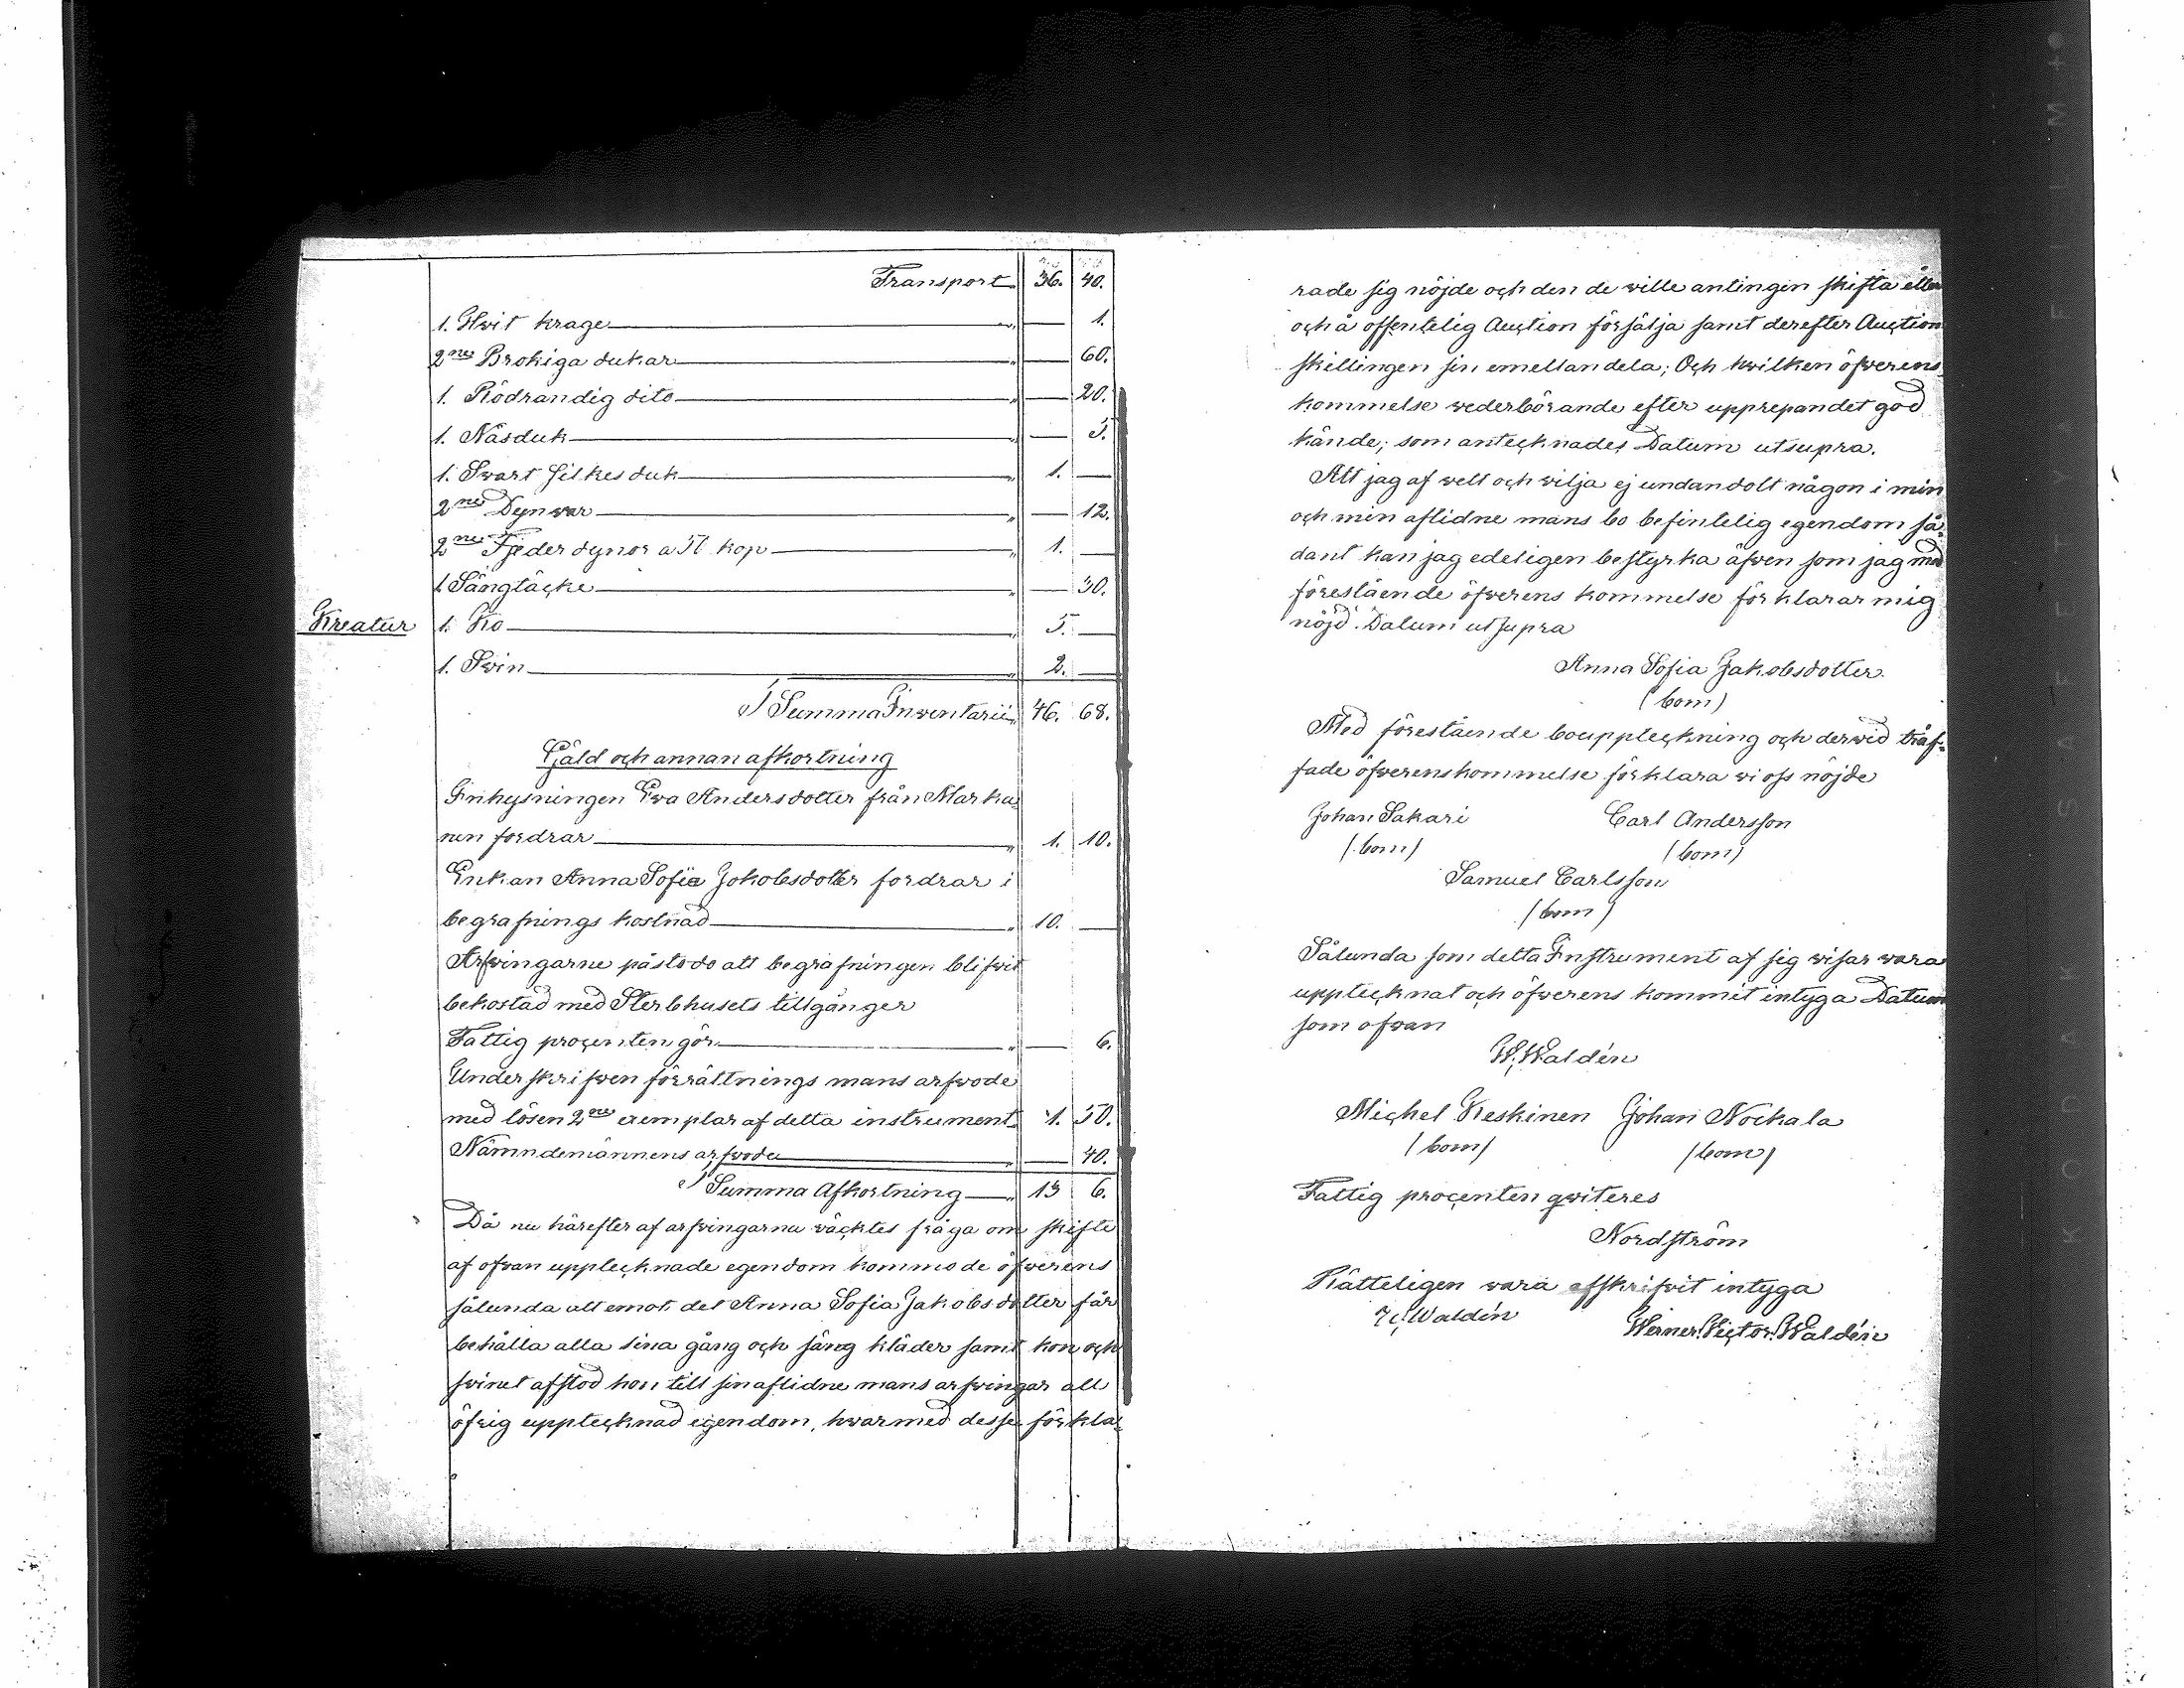 Transport 36. 40.
1. Hvit krage " — 1.
2ne Brokiga dukar " — 60.
1. Rödrandig dito " — 20.
1. Näsduk " — 5.
1. Svart silkesduk " 1. —
2ne Dynvar " — 12.
2ne Fjeder dynor a 50 kop " 1. —
1. Sängtäcke " — 30.
Kreatur 1. Ko " 5. —
1. Svin " 2. —
Summa Inventarii 46. 68.
Gäld och annan afkortning
Inhysningen Eva Andersdotter från Marka-
nen fordrar " 1. 10.
Enkan Anna Sofia Jakobsdotter fordrar i
begrafnings kostnad " 10. —
Arfvingarne påstodo att begrafningen blifvit
bekostad med Sterbhusets tillgånger
Fattig procenten gör " — 6.
Underskrifven förrättnings mans arfvode
med lösen 2ne exemplar af detta instrument 1. 50.
Nämndemännens arfvode " — 40.
Summa Afkortning — " 13 6.
Då nu härefter af arfvingarna väcktes fråga om skifte
af ofvan upptecknade egendom kommo de öfverens
sålunda att emot det Anna Sofia Jakobsdotter får
behålla alla sina gång och säng kläder samt kon och
svinet afstod hon till sin aflidne mans arfvingar all
öfrig upptecknad egendom, hvarmed desse förkla-
rade sig nöjde och den de ville antingen skifta eller
och å offentelig Auction försälja samt derefter Auction
skillingen sin emellan dela; Och hvilken öfverens
kommelse vederbörande efter upprepandet god
kände; som antecknades Datum utsupra.
Att jag af vett och vilja ej undandolt någon i min
och min aflidne mans bo befintelig egendom så-
dant kan jag edeligen bestyrka äfven som jag med
förestående öfverens kommelse förklarar mig
nöjd. Datum utsupra
Anna Sofia Jakobsdotter.
(bom)
Med förestående bouppteckning och dervid träf-
fade öfverenskommelse förklara vi oss nöjde
Johan Sakari Carl Andersson
(bom) (bom)
Samuel Carlsson
(bom)
Sålunda som detta Instrument af sig visar vara
upptecknat och öfverens kommit intyga Datum
som ofvan
W. Waldén
Michel Keskinen Johan Nockala
(bom) (bom)
Fattig procenten qviteres
Nordström
Rätteligen vara afskrifvit intyga
Waldén Werner Victor Waldén
KODAK SAFETY FILM